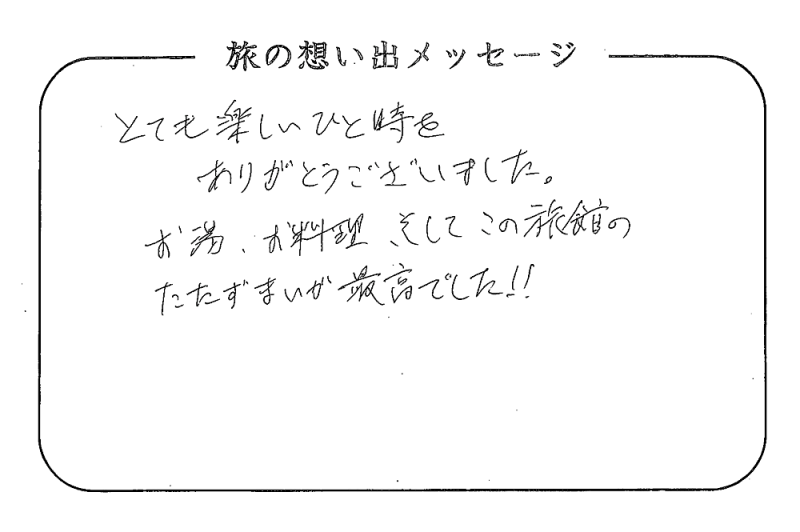 旅の想い出メッセージ
とても楽しいひと時を
ありがとうございました。
お湯、お料理、そしてこの旅館の
たたずまいが最高でした!!